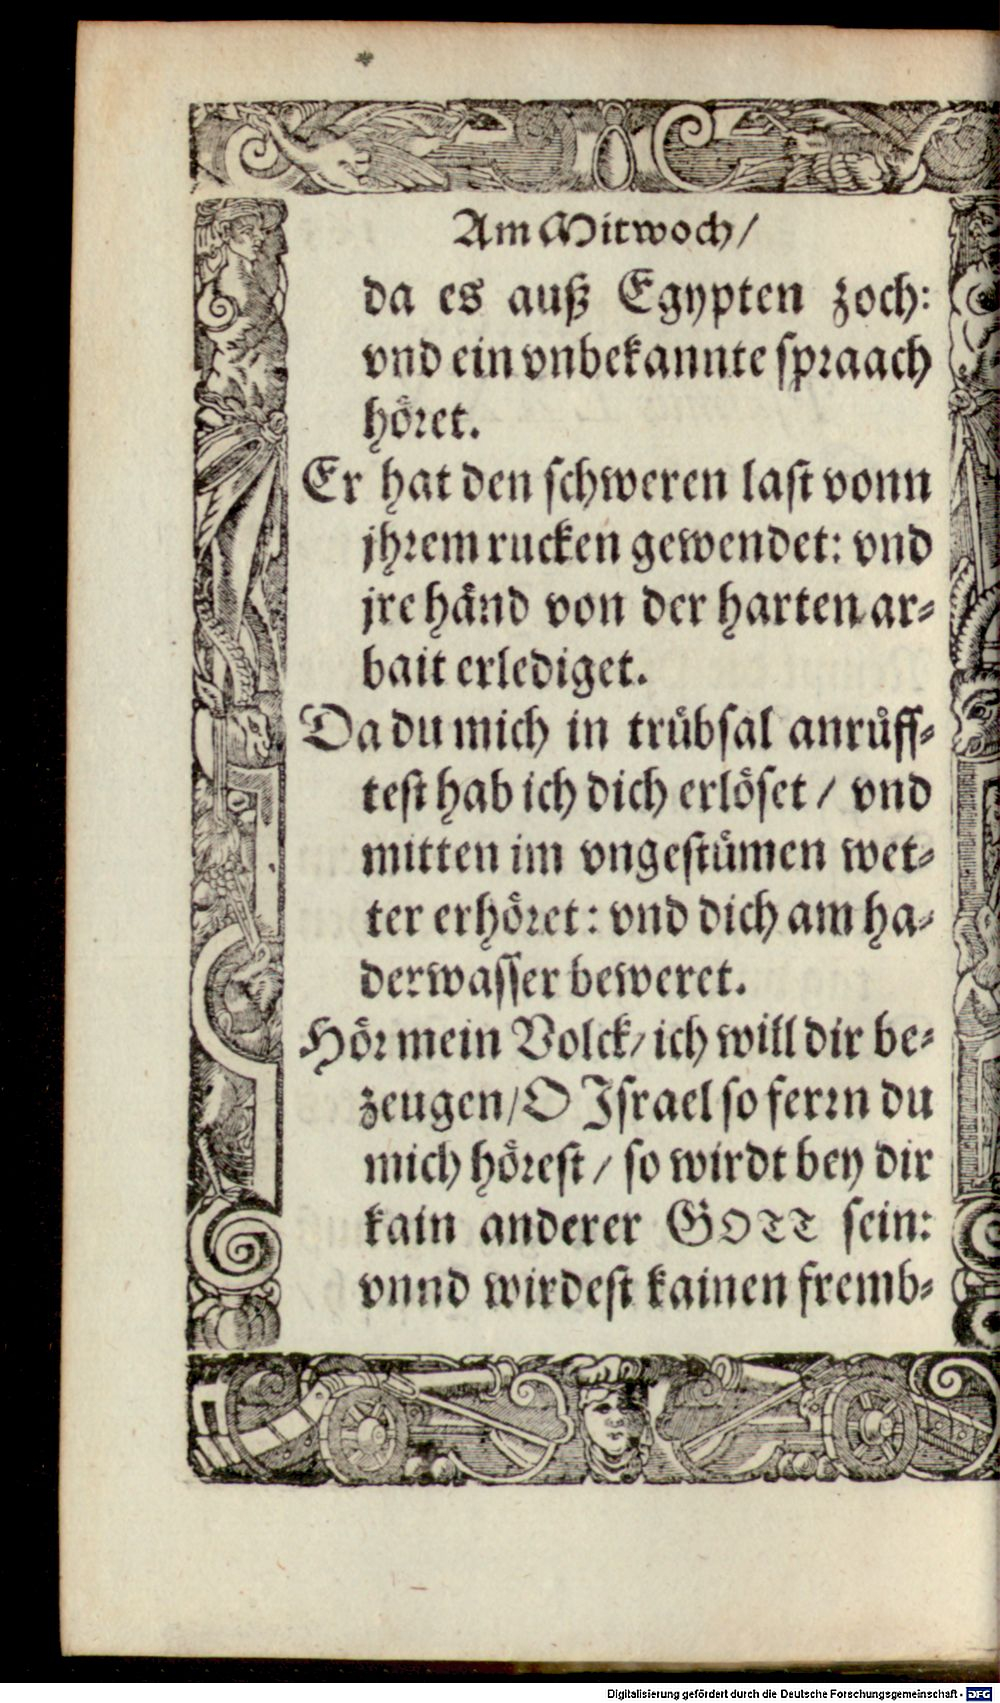 Am Mitwoch/
da es auß Egypten zoch:
vnd ein vnbekannte spraach
höret.
Er hat den schweren last vonn
jhrem rucken gewendet: vnd
jre händ von der harten ar⸗
bait erlediget.
Da du mich in trübsal anrůff⸗
test hab ich dich erlöset / vnd
mitten im vngestümen wet⸗
ter erhöret: vnd dich am ha⸗
derwasser beweret.
Hör mein Volck/ ich will dir be⸗
zeugen/ O Israel so ferrn du
mich hörest / so wirdt bey dir
kain anderer GOTT sein:
vnnd wirdest kainen fremb⸗
Digitalisierung gefördert durch die Deutsche Forschungsgemeinschaft - DFG